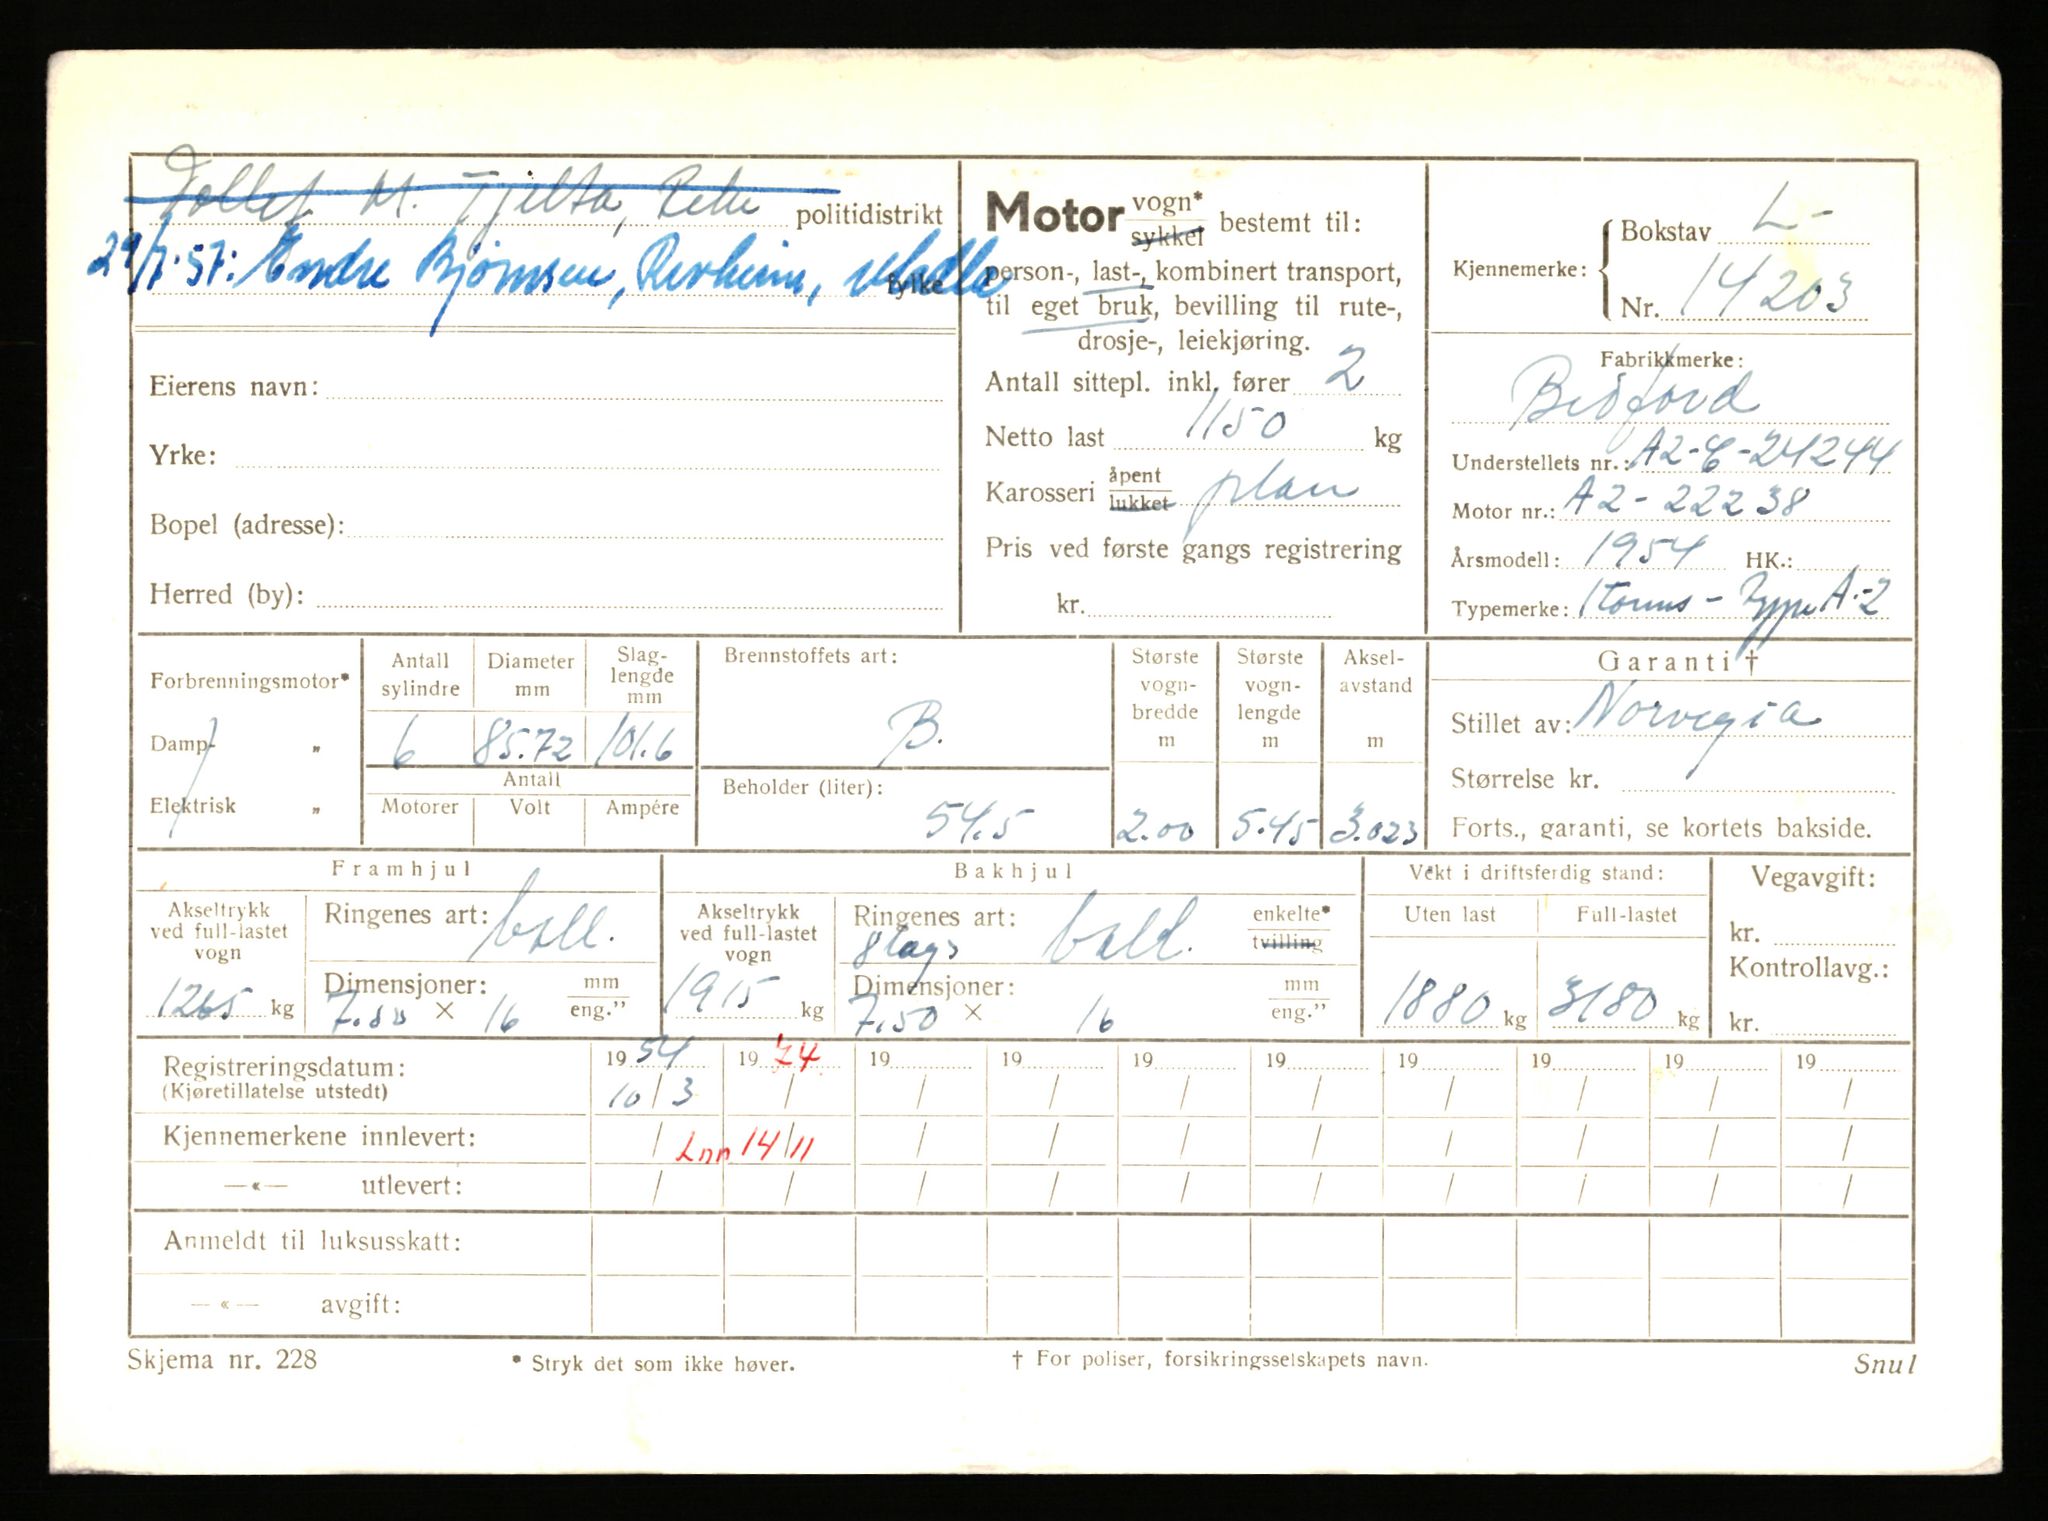 Tollef M. Tjelta, Reke politidistrikt
29/7-57: Endre Bjørnsen, Revheim, fylke
Eierens navn:
Yrke:
Bopel (adresse):
Herred (by):
Motor vogn* sykkel bestemt til:
person-, last-, kombinert transport,
til eget bruk, bevilling til rute-,
drosje-, leiekjøring.
Antall sittepl. inkl. fører 2
Netto last 1150 kg
Karosseri åpent lukket plan
Pris ved første gangs registrering
kr.
Kjennemerke: Bokstav L-
Nr. 14203
Fabrikkmerke:
Bedford
Understellets nr.: A2-C-24244
Motor nr.: A2-22238
Årsmodell: 1954 HK.:
Typemerke: - Type A-2
Forbrenningsmotor*
Damp- "
Elektrisk "
Antall sylindre Diameter mm Slaglengde mm
6 85.72 101.6
Antall
Motorer Volt Ampére
Brennstoffets art:
B.
Beholder (liter):
54.5
Største vognbredde m
2.00
Største vognlengde m
5.45
Akselavstand m
3.023
Garanti †
Stillet av: Norvegia
Størrelse kr.
Forts., garanti, se kortets bakside.
Framhjul
Akseltrykk ved full-lastet vogn
1265 kg
Ringenes art: ball.
Dimensjoner: mm eng."
7.50 × 16
Bakhjul
Akseltrykk ved full-lastet vogn
1915 kg
Ringenes art: ball. enkelte* tvilling
8 lags
Dimensjoner: mm eng."
7.50 × 16
Vekt i driftsferdig stand:
Uten last Full-lastet
1880 kg 3180 kg
Vegavgift:
kr.
Kontrollavg.:
kr.
Registreringsdatum: 19 54 19 74 19 19 19 19 19 19 19 19
(Kjøretillatelse utstedt) 10/3 / / / / / / / / /
Kjennemerkene innlevert: / Inn 14/11 / / / / / / / /
—«— utlevert: / / / / / / / / / /
Anmeldt til luksusskatt:
—«— avgift:
Skjema nr. 228 * Stryk det som ikke høver. † For poliser, forsikringsselskapets navn. Snul